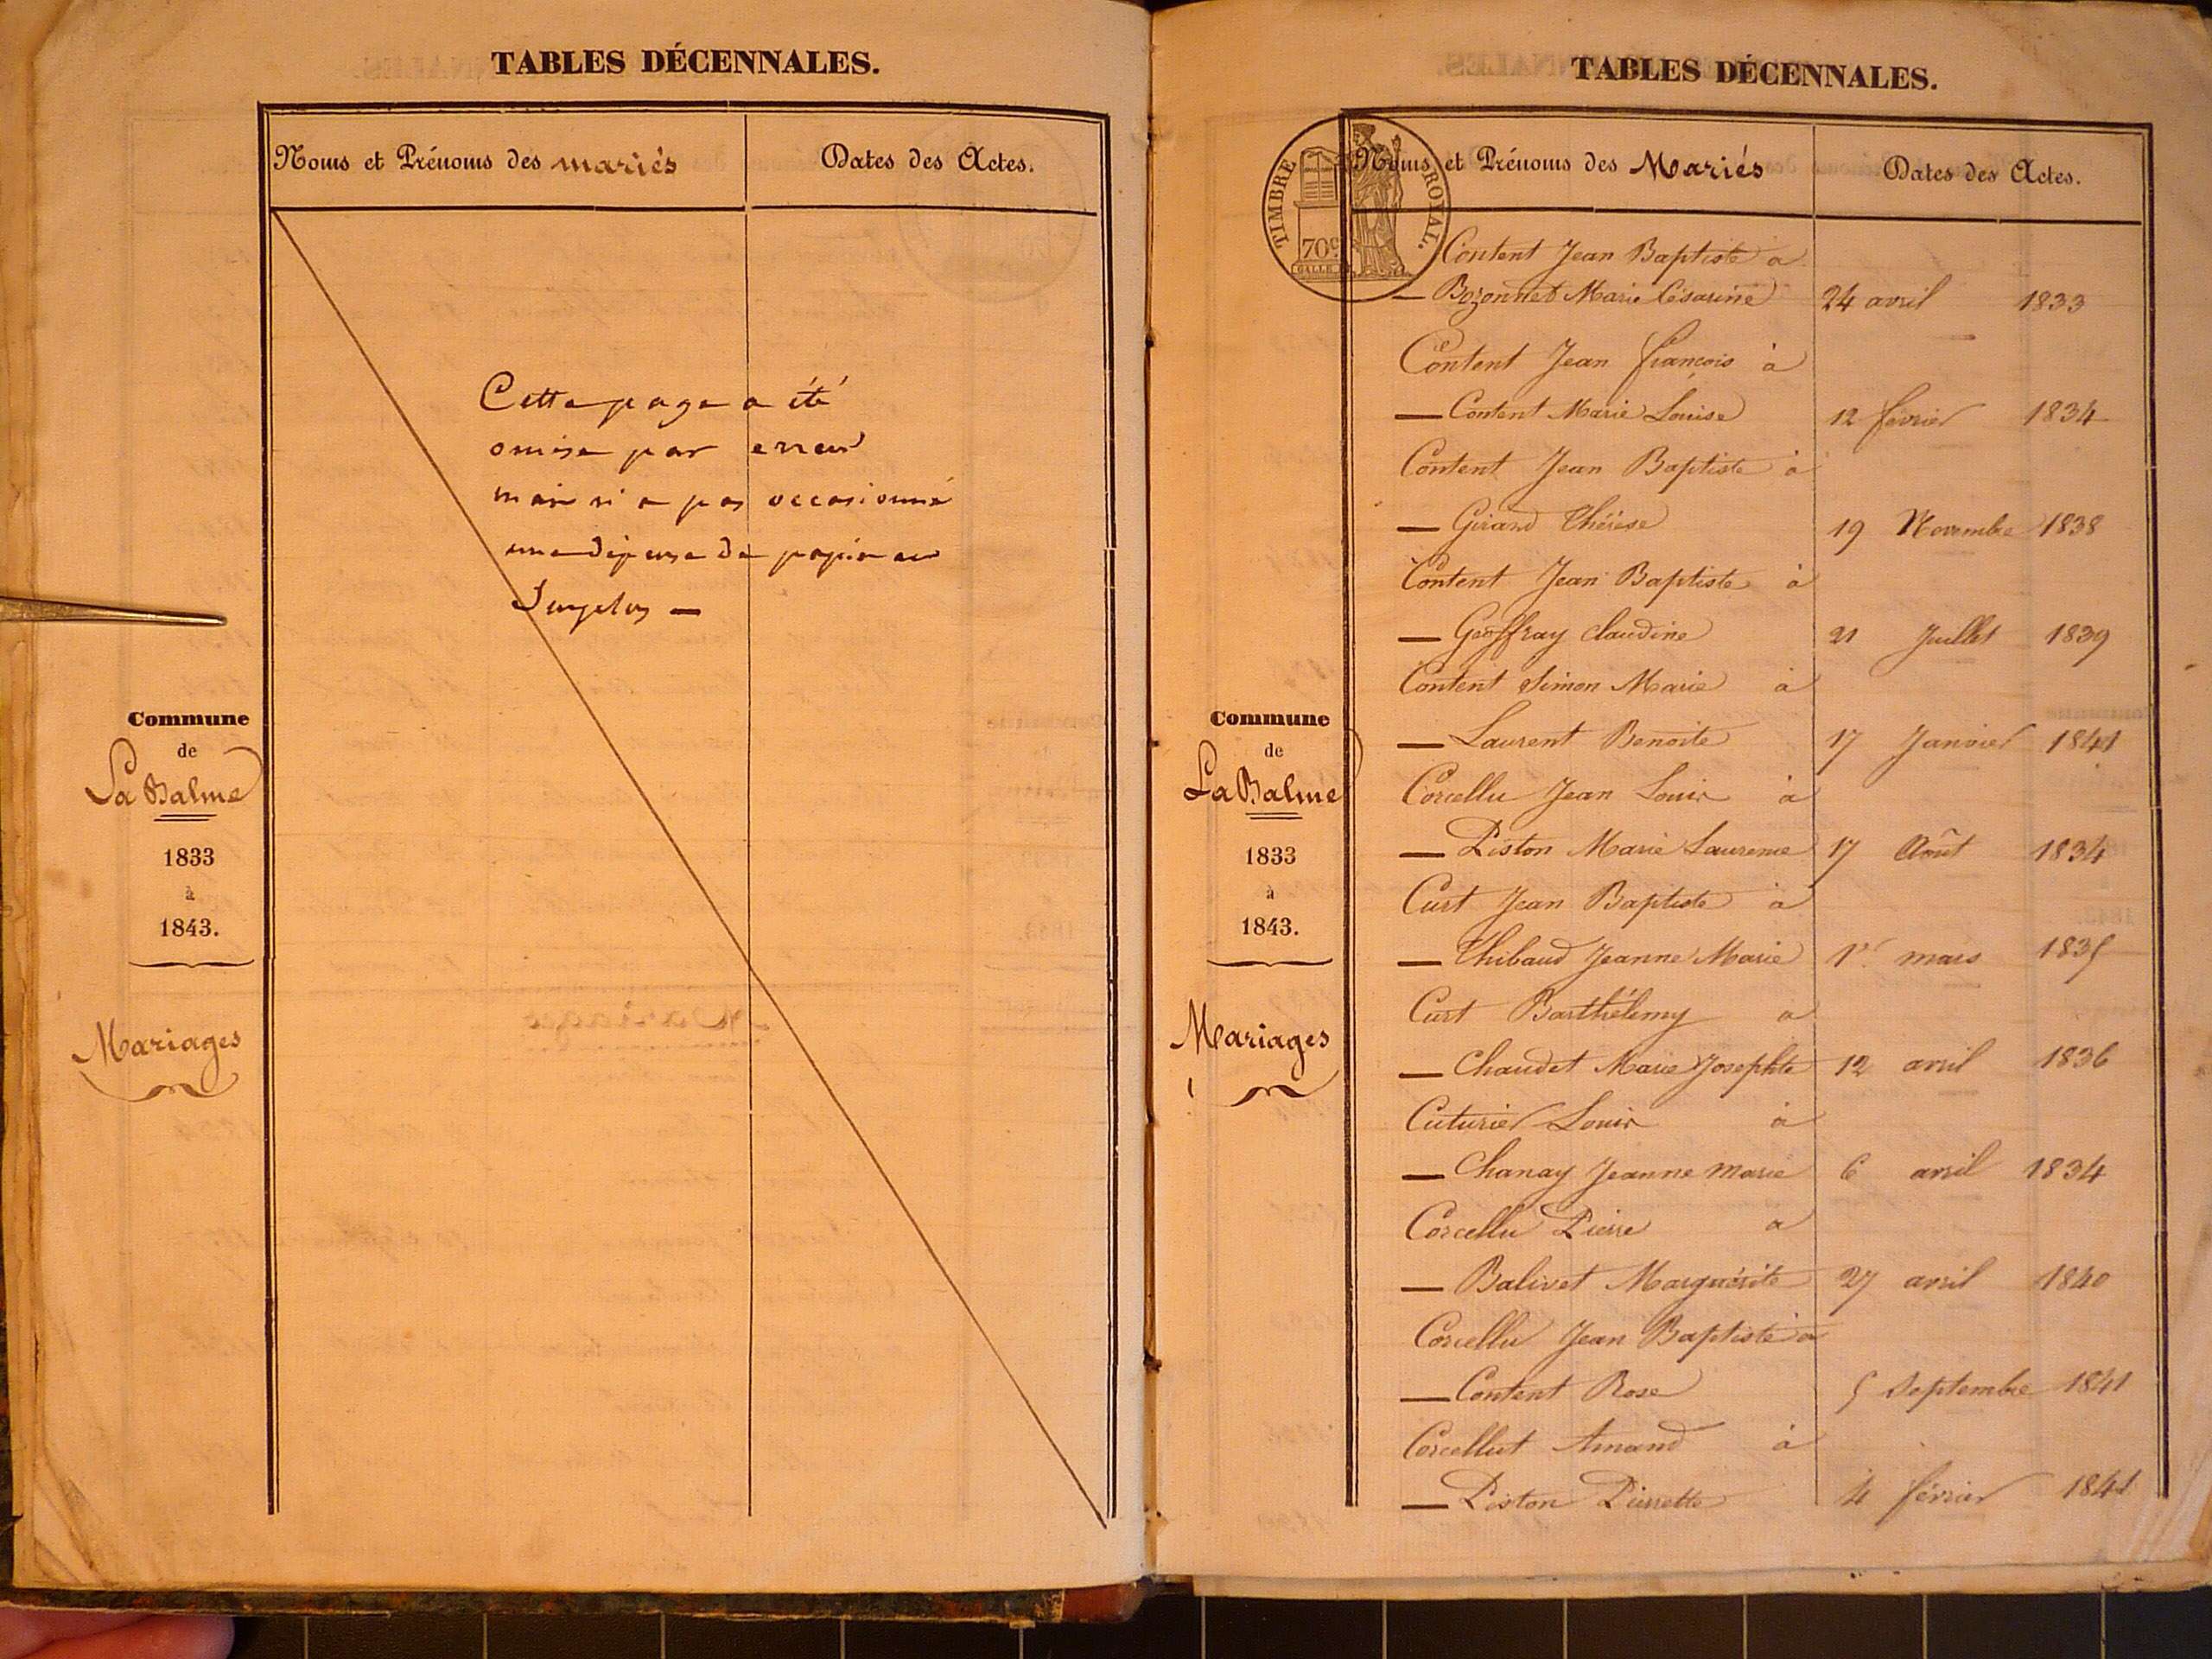 TABLES DÉCENNALES.
Noms et Prénoms des mariés
Dates des Actes.
Cette page a été
omise par erreur
mais n'a pas occasionné
une dépense de papier au
Surplus —
Commune
de
La Balme
1833
à
1843.
Mariages
TABLES DÉCENNALES.
TIMBRE ROYAL.
70c
Noms et Prénoms des Mariés
Dates des Actes.
Content Jean Baptiste a
— Bozonnet Marie Césarine 24 avril 1833
Content Jean françois à
— Content Marie Louise 12 février 1834
Content Jean Baptiste à
— Girand Thérèse 19 Novembre 1838
Content Jean Baptiste à
— Geoffray Claudine 21 Juillet 1839
Content Simon Marie à
— Laurent Benoite 17 Janvier 1841
Corcellu Jean Louis à
— Piston Marie Laurence 17 Août 1834
Curt Jean Baptiste à
— Thibaud Jeanne Marie 1er mars 1835
Curt Barthélemy a
— Chaudet Marie Josephte 12 avril 1836
Cuturier Louis à
— Chanay Jeanne marie 6 avril 1834
Corcellu Pierre a
— Balivet Marguérite 27 avril 1840
Corcellu Jean Baptiste a
— Content Rose 5 Septembre 1841
Corcellut Amand à
— Piston Pierrette 4 février 1841
Commune
de
La Balme
1833
à
1843.
Mariages